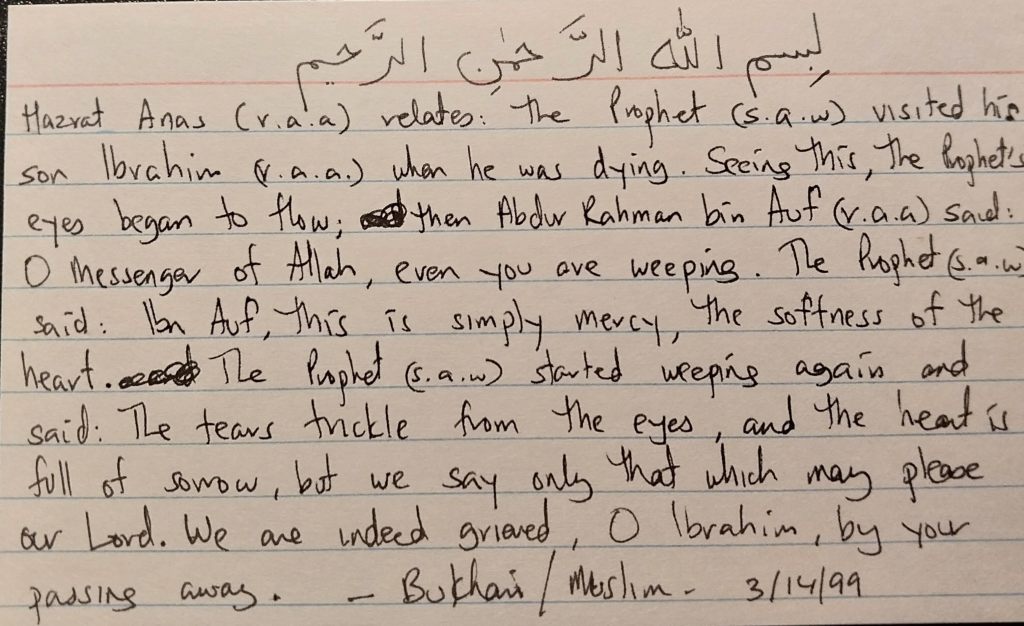 بِسم الله الرَّحمٰنِ الرَّحيم
Hazrat Anas (r.a.a) relates: The Prophet (s.a.w) visited his
son Ibrahim (r.a.a.) when he was dying. Seeing this, the Prophet's
eyes began to flow; then Abdur Rahman bin Auf (r.a.a) said:
O Messenger of Allah, even you are weeping. The Prophet (s.a.w)
said: Ibn Auf, this is simply mercy, the softness of the
heart. The Prophet (s.a.w) started weeping again and
said: The tears trickle from the eyes, and the heart is
full of sorrow, but we say only that which may please
our Lord. We are indeed grieved, O Ibrahim, by your
passing away. - Bukhari/Muslim - 3/14/99